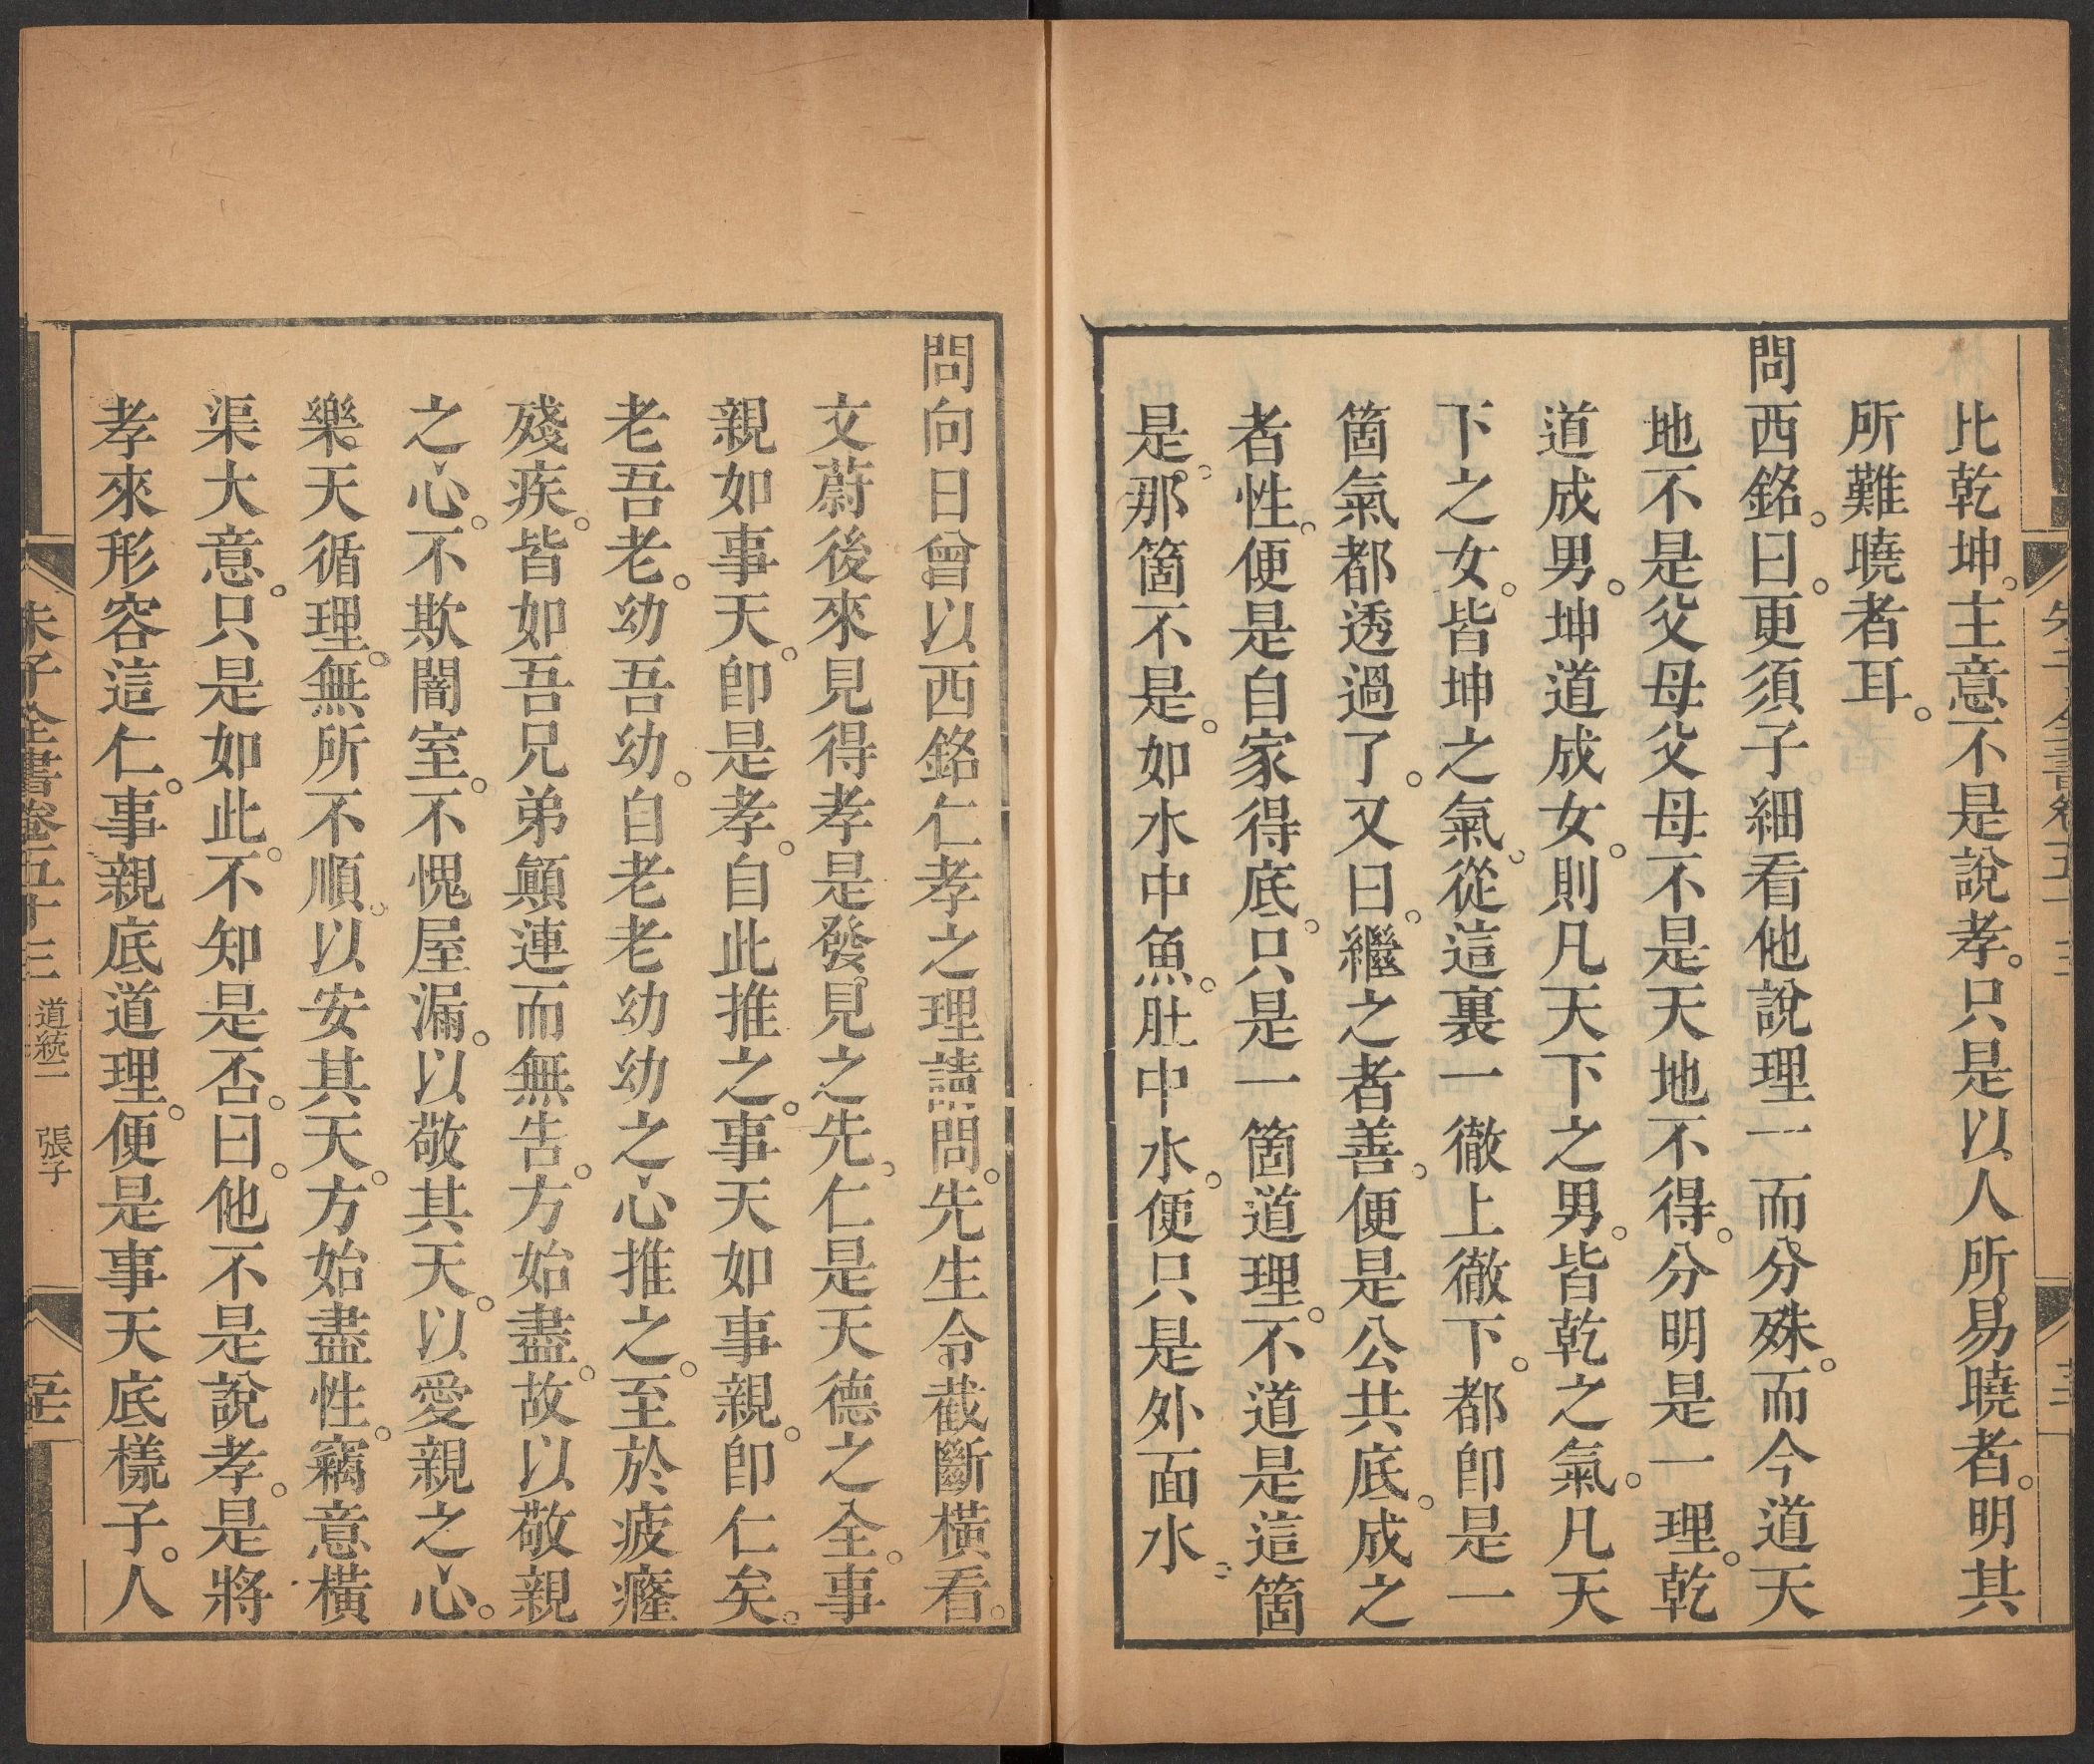 比乾坤。主意不是說孝。只是以人所易曉者。明其
所難曉者耳。
問西銘。曰。更須子細看他說理一而分殊。而今道天
地不是父母父母不是天地不得。分明是一理。乾
道成男。坤道成女。則凡天下之男。皆乾之氣。凡天
下之女。皆坤之氣。從這裏一徹上徹下。都卽是一
箇氣都透過了。又曰。繼之者善。便是公共底。成之
者性。便是自家得底。只是一箇道理。不道是這箇
是。那箇不是。如水中魚。肚中水。便只是外面水。
問向日曾以西銘仁孝之理請問。先生令截斷橫看。
文蔚後來見得孝是發見之先。仁是天德之全。事
親如事天。卽是孝。自此推之。事天如事親。卽仁矣。
老吾老。幼吾幼。自老老幼幼之心推之。至於疲癃
殘疾。皆如吾兄弟顛連而無告。方始盡。故以敬親
之心。不欺闇室。不愧屋漏。以敬其天。以愛親之心。
樂天循理。無所不順。以安其天。方始盡性。竊意橫
渠大意。只是如此。不知是否。曰。他不是說孝。是將
孝來形容這仁。事親底道理。便是事天底樣子。人
朱子全書卷五十三 道統二 張子